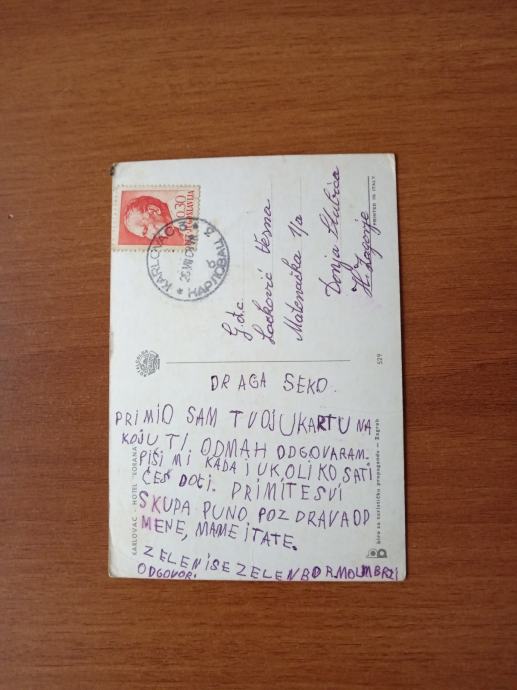 0.30
JUGOSLAVIJA
KARLOVAC
КАРЛОВАЦ
G.đc.
Lacković Vesna
Matenačka 1/a
Donja Stubica
H. Zagorje
PRINTED IN ITALY
529
DRAGA SEKO.
PRIMIO SAM TVOJU KARTU NA
KOJU TI ODMAH ODGOVARAM.
PIŠI MI KADA I U KOLIKO SATI
ĆEŠ DOĆI. PRIMITE SVI
SKUPA PUNO POZDRAVA OD
MENE, MAME I TATE.
ZELENI SE ZELEN BOR MOLIM BRZI
ODGOVOR.
KARLOVAC - HOTEL "KORANA"
Biro za turističku propagandu - Zagreb